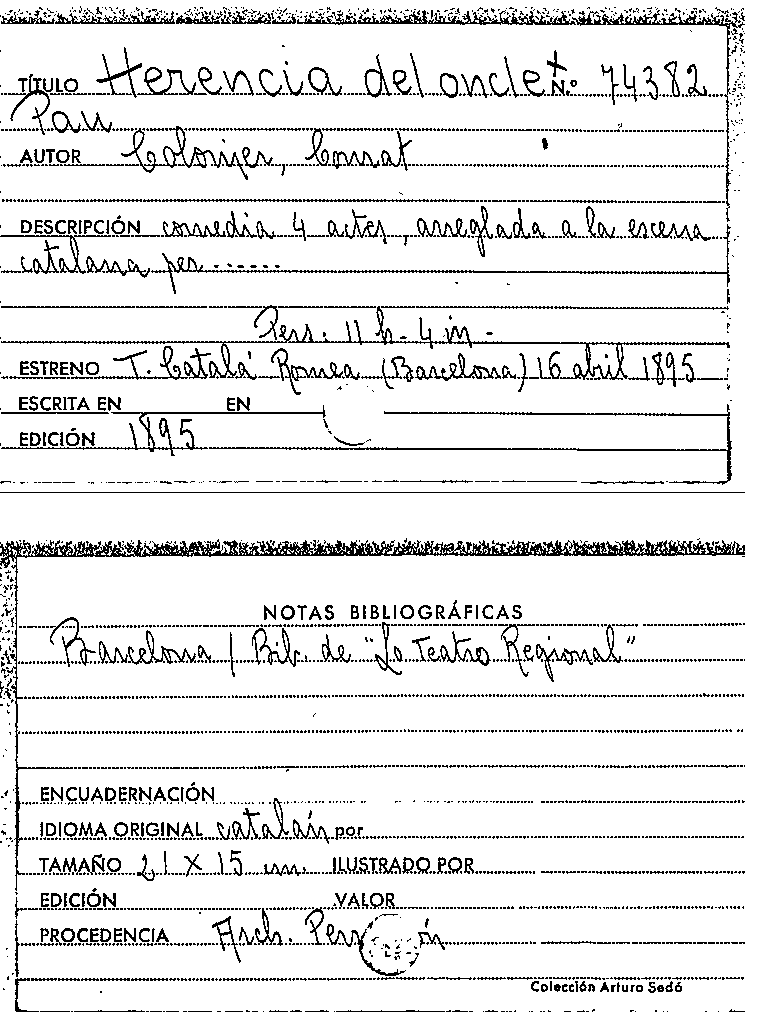 TÍTULO Herencia del oncle N.º 74382
Pau
AUTOR Colomer, Conrat
DESCRIPCIÓN comedia 4 actes, arreglada a la escena
catalana per ......
Pers: 11 h - 4 m -
ESTRENO T. Catalá Romea (Barcelona) 16 abril 1895
ESCRITA EN EN
EDICIÓN 1895
NOTAS BIBLIOGRÁFICAS
Barcelona / Bib. de "Lo Teatro Regional"
ENCUADERNACIÓN
IDIOMA ORIGINAL catalán por
TAMAÑO 21 X 15 cm. ILUSTRADO POR
EDICIÓN VALOR
PROCEDENCIA Arch.
Colección Arturo Sedó